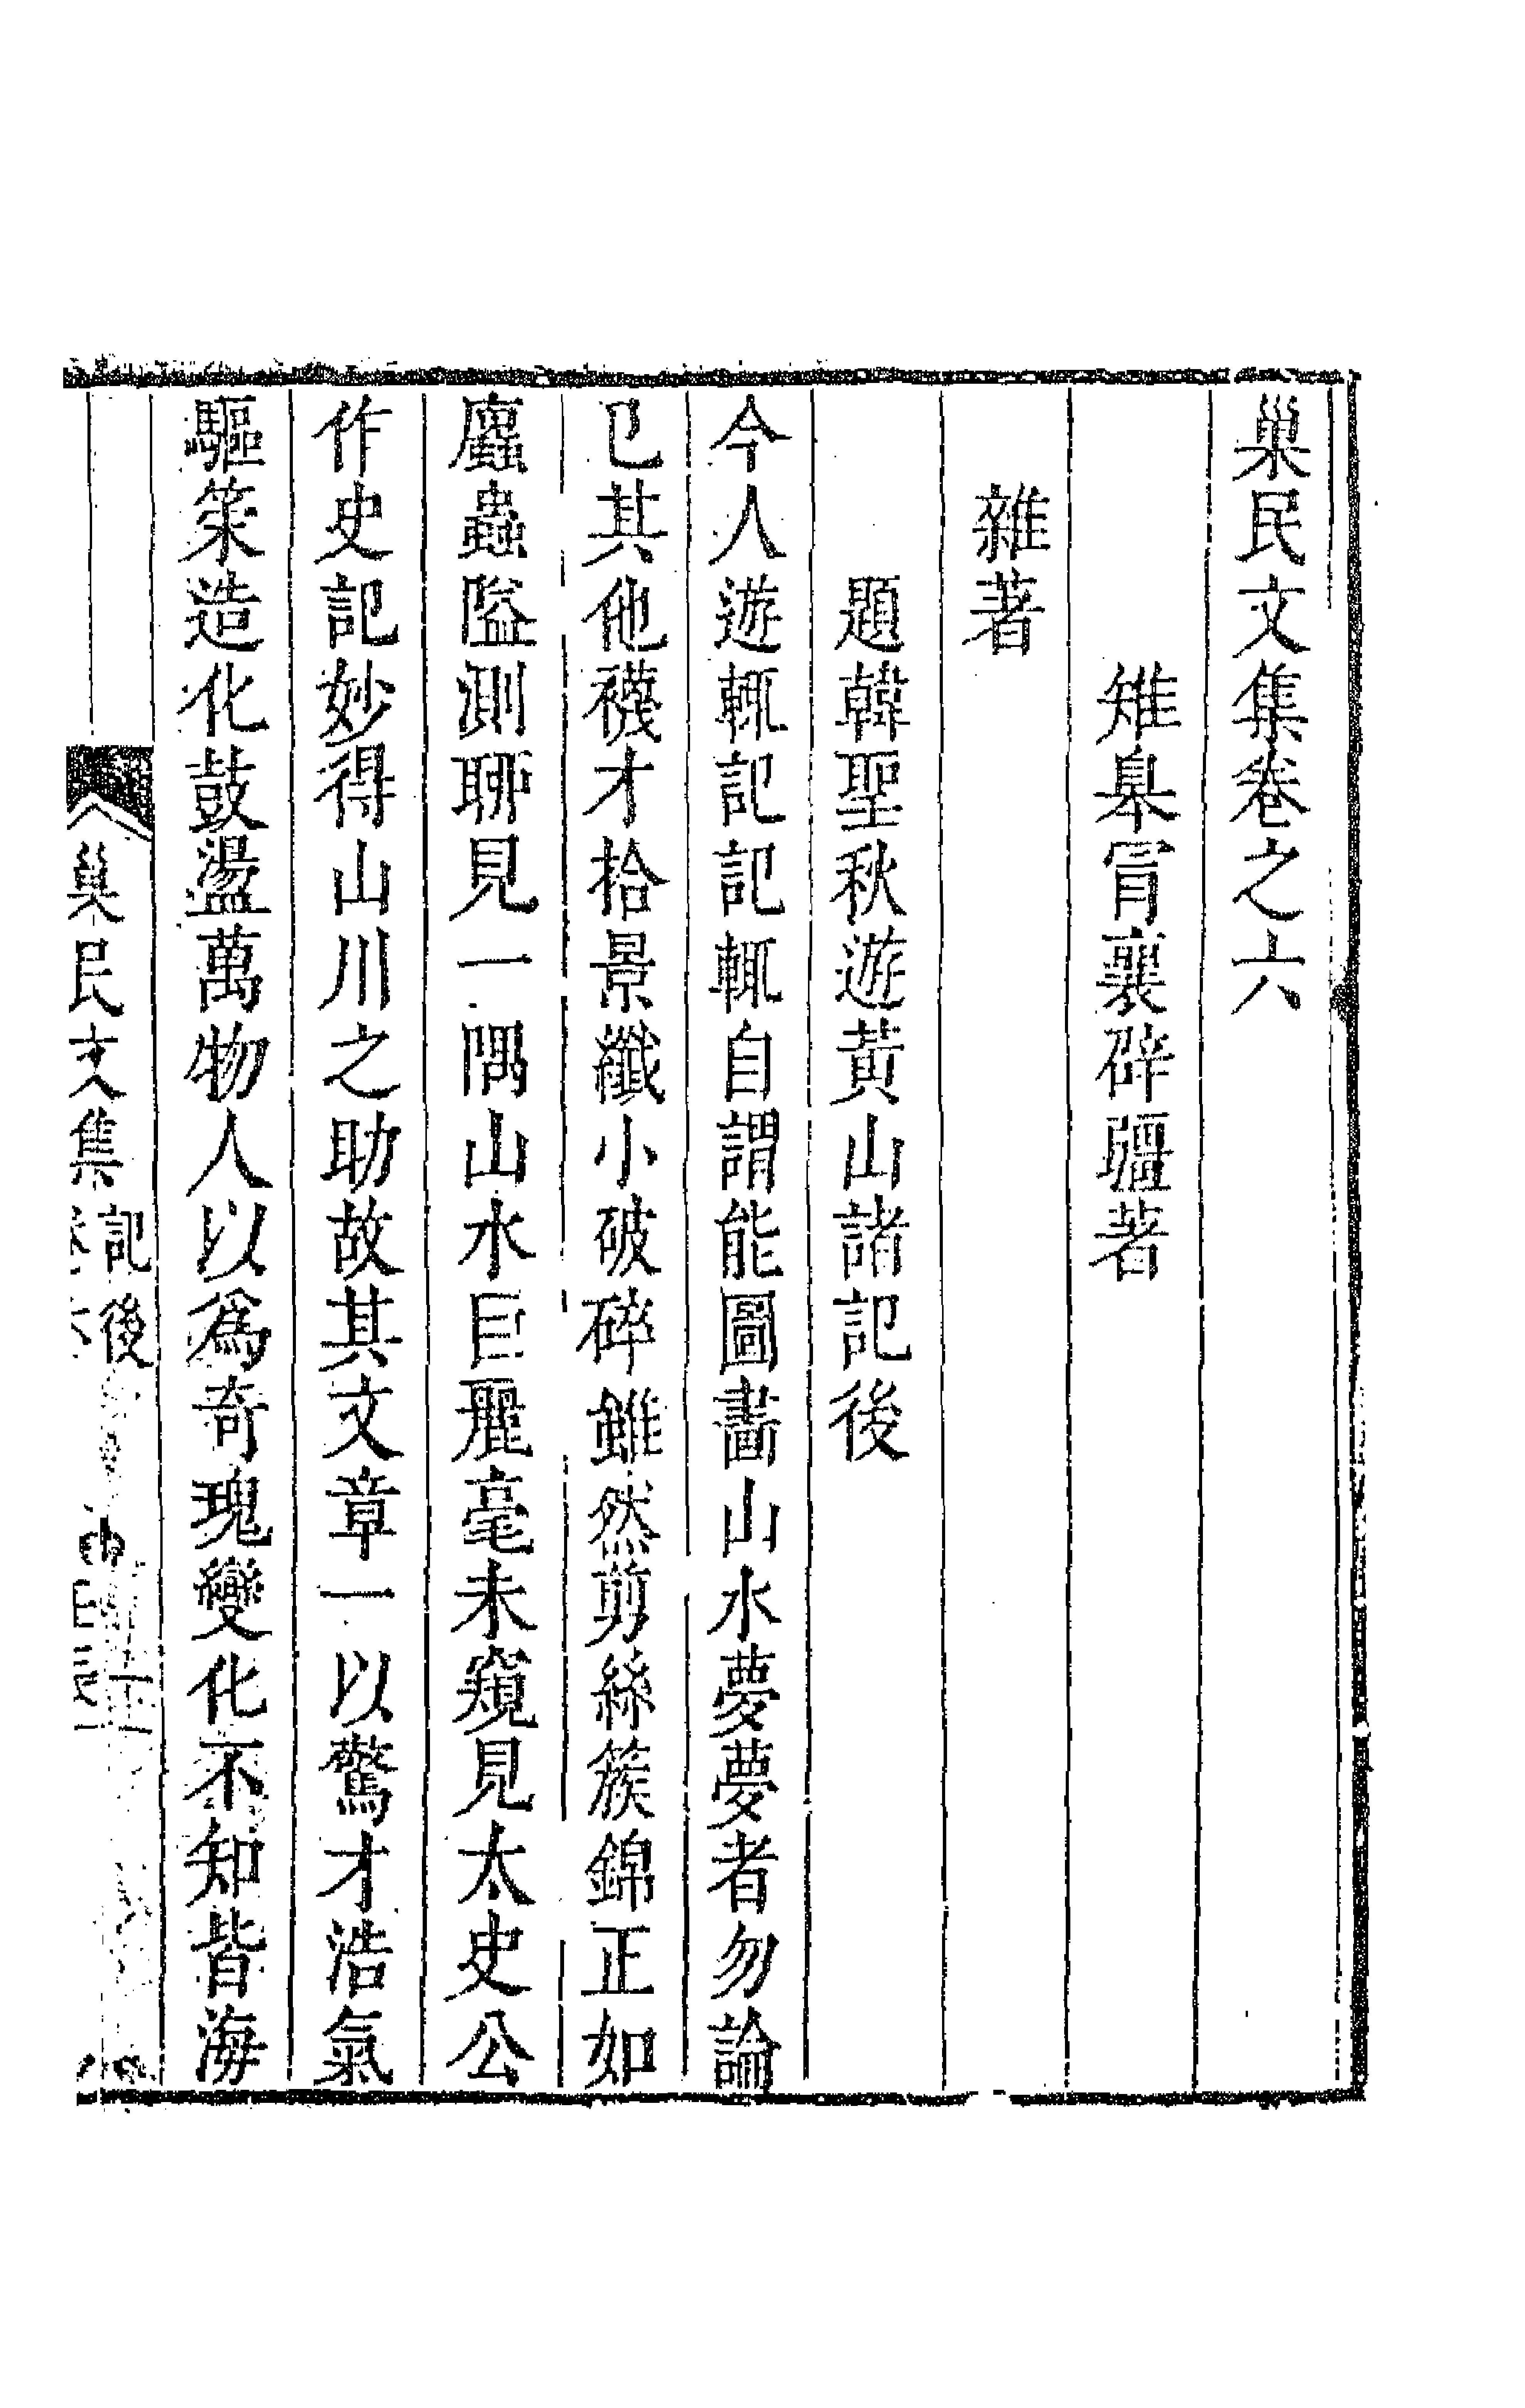 巢民文集卷之六
雉皋冒襄辟疆著
雜著
題韓聖秋遊黃山諸記後
今人遊輒記記輒自謂能圖畫山水夢夢者勿論
已其他襪才拾景纖小破碎雖然剪絲簇錦正如
廬蠡隘測聊見一隅山水巨麗毫未窺見太史公
作史記妙得山川之助故其文章一以驚才浩氣
驅策造化鼓盪萬物人以爲奇瑰變化不知皆海
巢民文集
記後